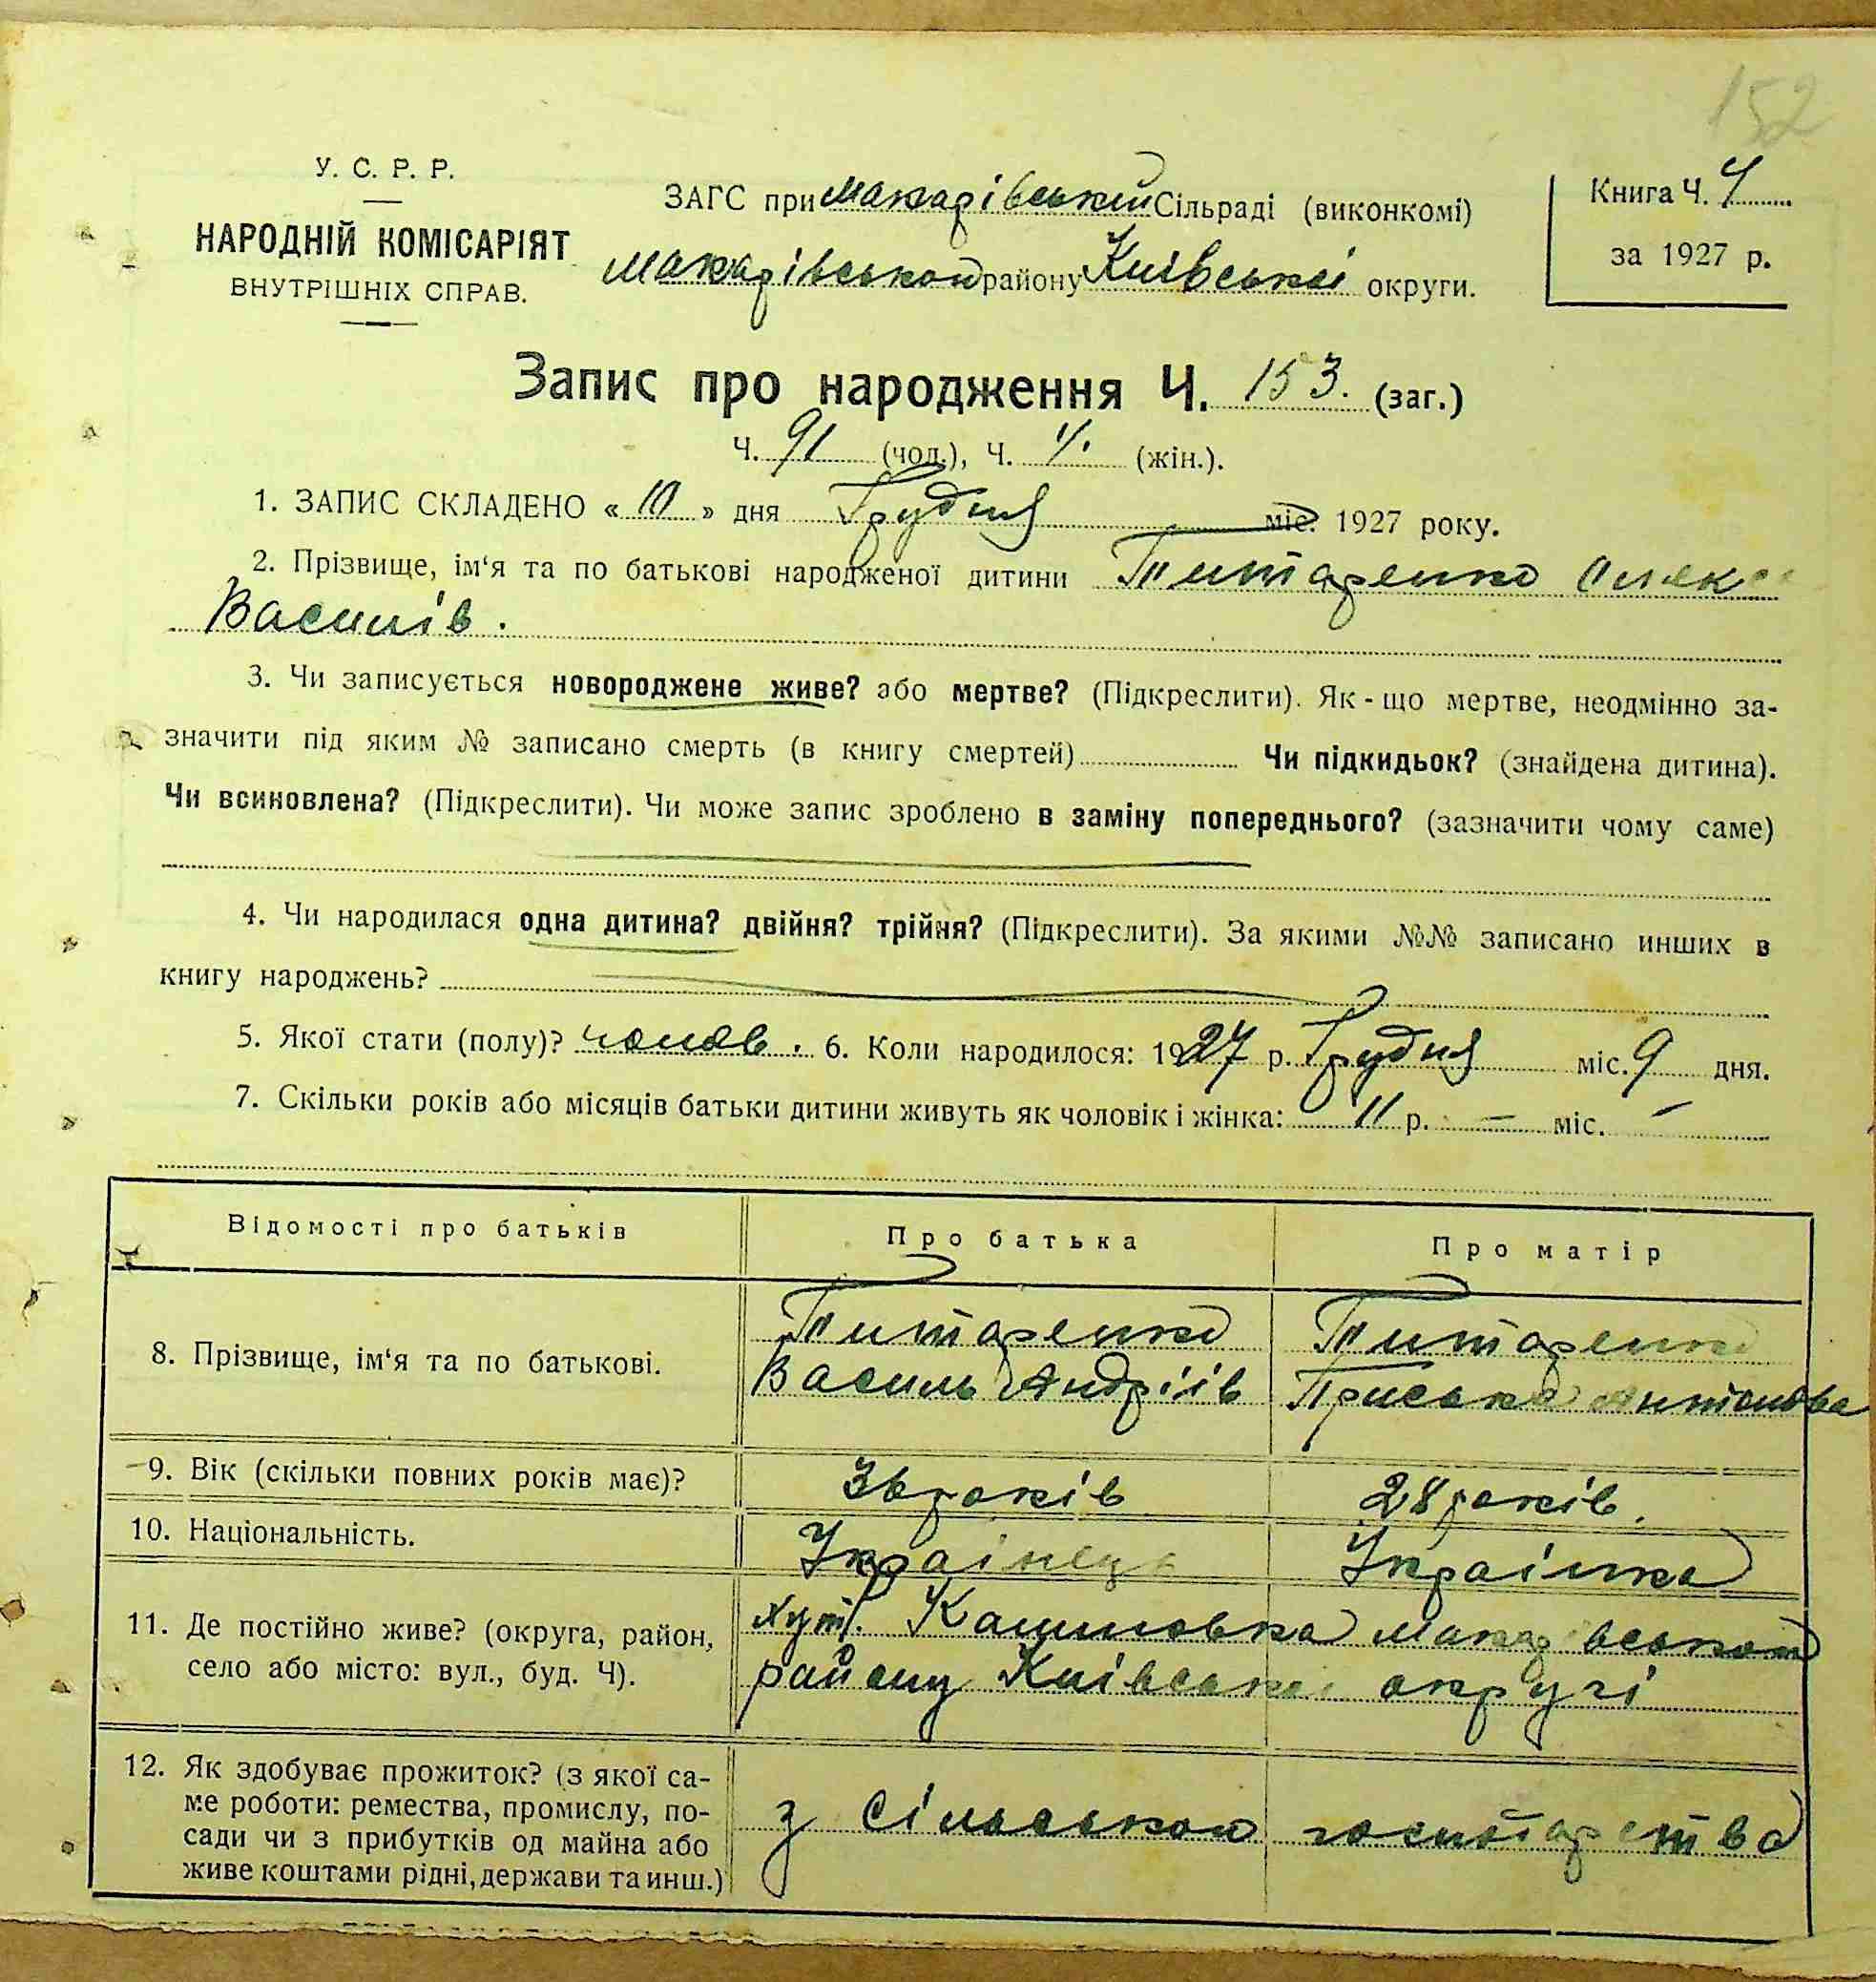 152
У. С. Р. Р.
НАРОДНІЙ КОМІСАРІЯТ
ВНУТРІШНІХ СПРАВ.
ЗАГС при Макарівській Сільраді (виконкомі)
Макарівського району Київської округи.
Книга Ч. 4
за 1927 р.
Запис про народження Ч. 153. (заг.)
Ч. 91 (чол.), Ч. (жін.).
1. ЗАПИС СКЛАДЕНО « 10 » дня Грудня міс. 1927 року.
2. Прізвище, ім‘я та по батькові народженої дитини Титаренко
Василів.
3. Чи записується новороджене живе? або мертве? (Підкреслити). Як-що мертве, неодмінно за-
значити під яким № записано смерть (в книгу смертей) Чи підкидьок? (знайдена дитина).
Чи всиновлена? (Підкреслити). Чи може запис зроблено в заміну попереднього? (зазначити чому саме)
4. Чи народилася одна дитина? двійня? трійня? (Підкреслити). За якими №№ записано инших в
книгу народжень?
5. Якої стати (полу)? чолов. 6. Коли народилося: 1927 р. Грудня міс. 9 дня.
7. Скільки років або місяців батьки дитини живуть як чоловік і жінка: 11 р. — міс. —
Відомості про батьків
Про батька
Про матір
8. Прізвище, ім‘я та по батькові.
Титаренко
Василь Андріїв
Титаренко
Приська Антонова
9. Вік (скільки повних років має)?
36 років
28 років.
10. Національність.
Украінець
Украінка
11. Де постійно живе? (округа, район,
село або місто: вул., буд. Ч).
хут. Макарівського
району Київської округі
12. Як здобуває прожиток? (з якої са-
ме роботи: ремества, промислу, по-
сади чи з прибутків од майна або
живе коштами рідні, держави та инш.)
з сільського господарства